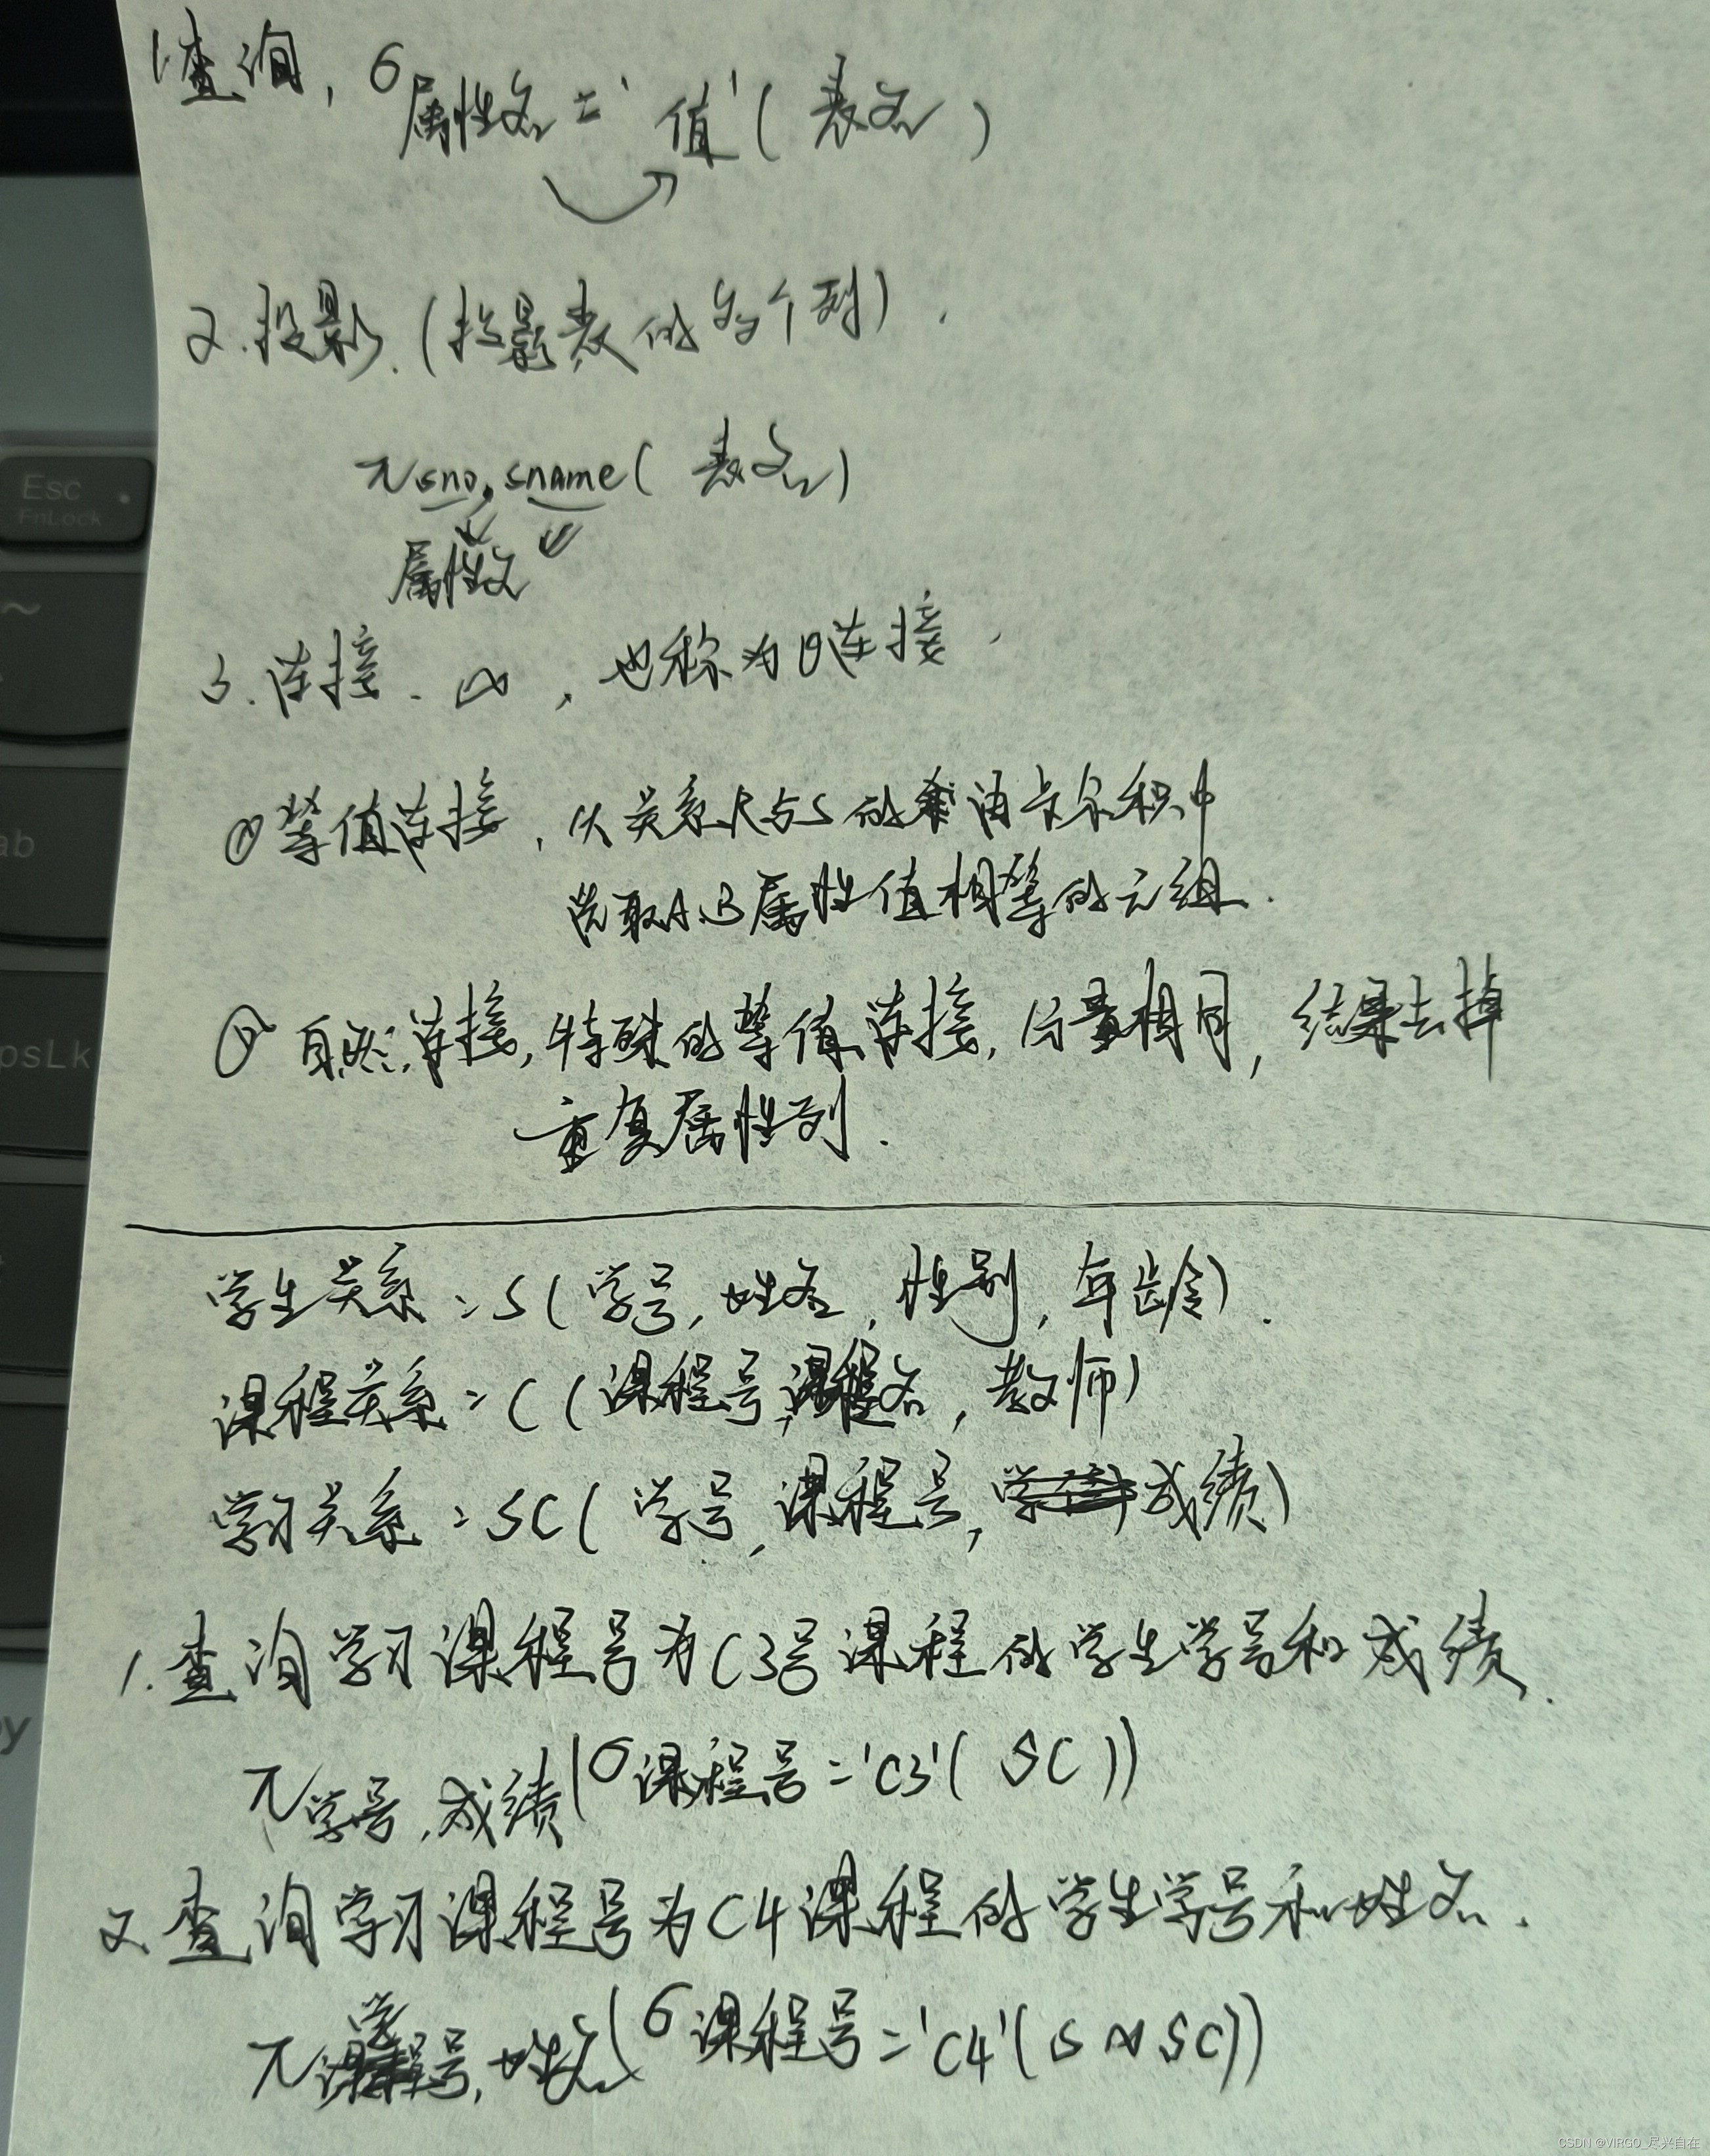 1.查询, σ属性名='值'(表名)
2.投影.(投影表的多个列).
πsno,sname(表名)
属性名
3.连接. ⋈, 也称为θ连接.
①等值连接, 从关系R与S的笛卡尔积中
选取A,B属性值相等的元组.
②自然连接,特殊的等值连接,分量相同,结果去掉
重复属性列.
学生关系:S(学号,姓名,性别,年龄).
课程关系:C(课程号,课程名,教师)
学习关系:SC(学号,课程号,成绩)
1.查询学习课程号为C3号课程的学生学号和成绩.
π学号,成绩(σ课程号='C3'(SC))
2.查询学习课程号为C4课程的学生学号和姓名.
π学号,姓名(σ课程号='C4'(S⋈SC))
Esc
FnLock
ab
psLk
CSDN @VIRGO_尽兴自在